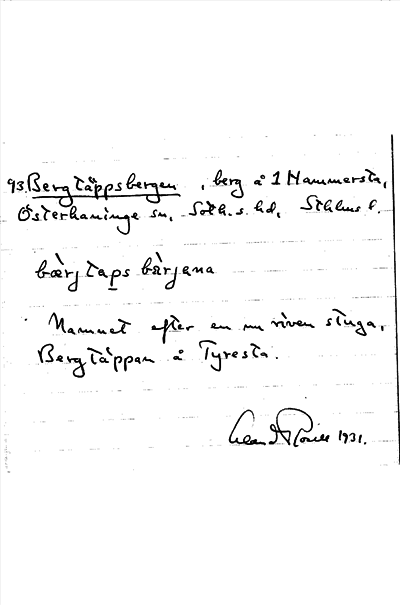 93. Bergtäppsbergen, berg å 1 Hammersta,
Österhaninge sn, Soth. s. hd, Sthlms l.
bærj taps bærjena
Namnet efter en nu riven stuga,
Bergtäppan å Tyresta.
1931.